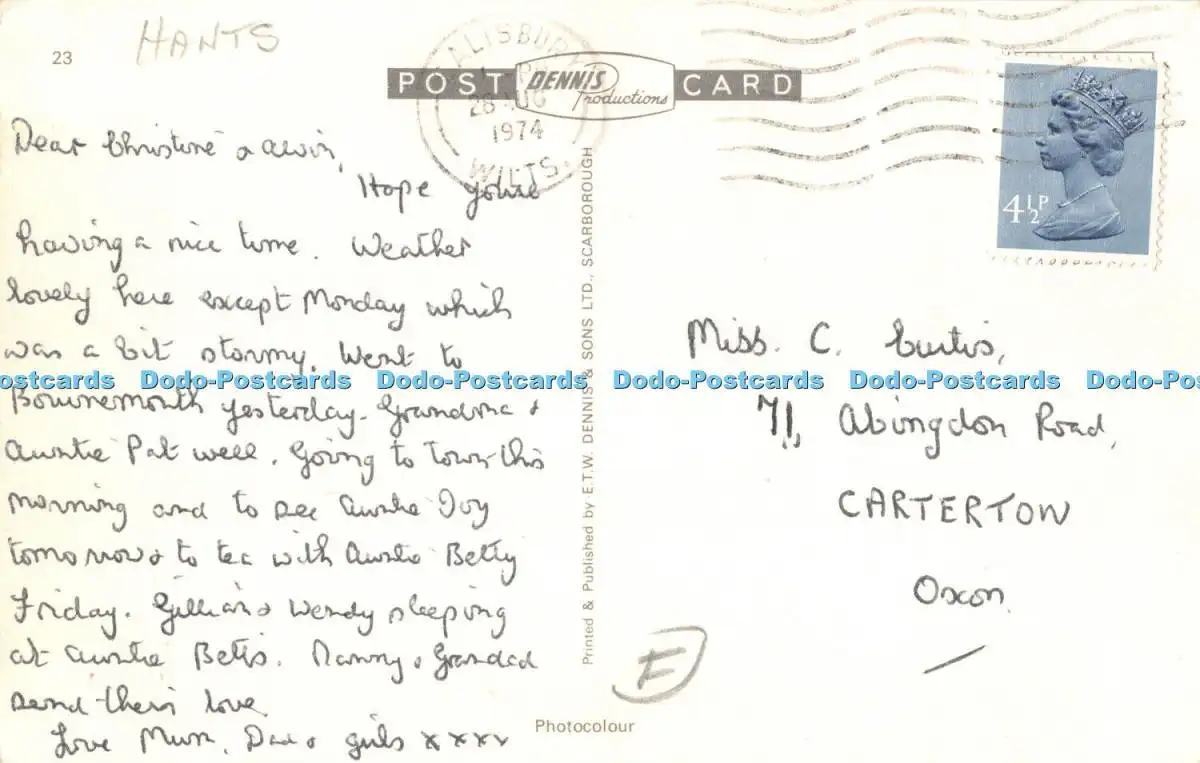 HANTS
23
POST DENNIS Productions CARD
SALISBURY
28 AUG
1974
WILTS.
4½P
Dear Christine & Alvin,
Hope you're
having a nice time. Weather
lovely here except Monday which
was a bit stormy. Went to
Bournemouth yesterday. Grandma &
Auntie Pat well. Going to town this
morning and to see Auntie Joy
tomorrow & to tea with Auntie Betty
Friday. Gillian & Wendy sleeping
at Auntie Bets. Nanny & Grandad
send their love.
Love Mum, Dad & girls xxxx
Printed & Published by E.T.W. DENNIS & SONS LTD., SCARBOROUGH
Miss. C. Curtis,
71, Abingdon Road,
CARTERTON
Oxon.
E
Photocolour
ostcards Dodo-Postcards Dodo-Postcards Dodo-Postcards Dodo-Postcards Dodo-Pos